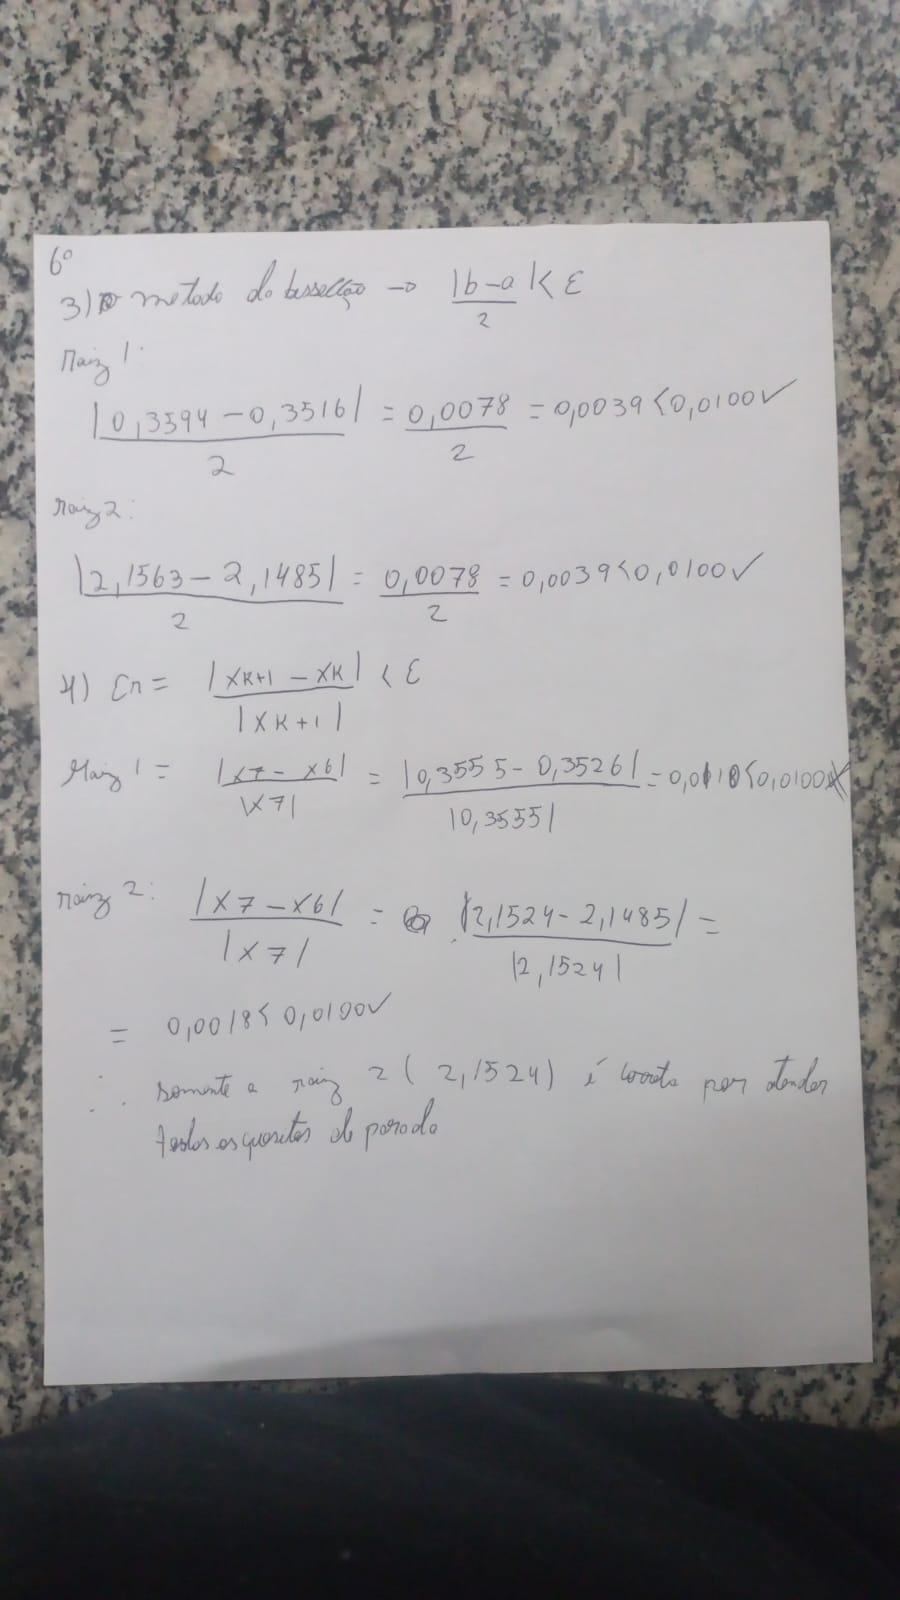 6º
3) método da bissecção → |b-a|/2 < ε
Raiz 1:
|0,3594 - 0,3516|/2 = 0,0078/2 = 0,0039 < 0,0100 ✓
raiz 2:
|2,1563 - 2,1485|/2 = 0,0078/2 = 0,0039 < 0,0100 ✓
4) En = |xk+1 - xk|/|xk+1| < ε
Raiz 1 = |x7 - x6|/|x7| = |0,3555 - 0,3526|/|0,3555| = < 0,0100
raiz 2: |x7 - x6|/|x7| = |2,1524 - 2,1485|/|2,1524| =
= 0,0018 < 0,0100 ✓
∴ somente a raiz 2 (2,1524) é correta por atender
todos os de parada